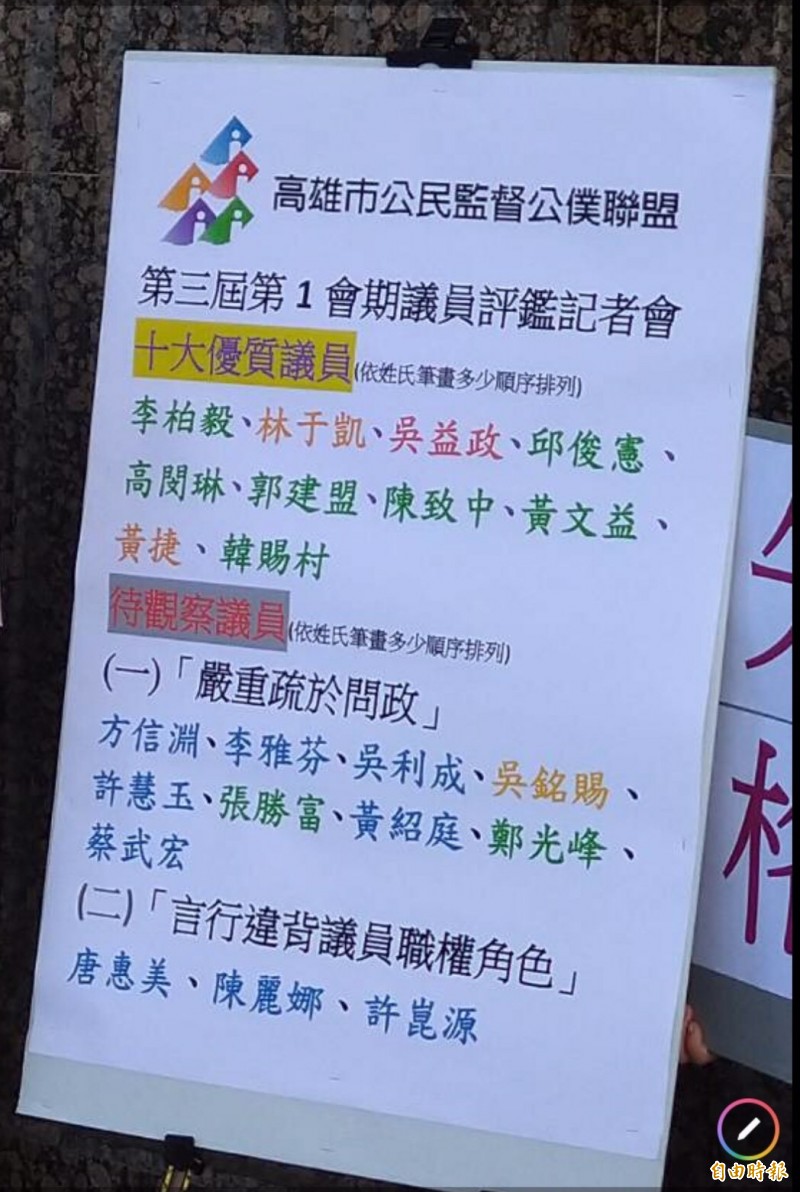 高雄市公民監督公僕聯盟
第三屆第1會期議員評鑑記者會
十大優質議員(依姓氏筆畫多少順序排列)
李柏毅、林于凱、吳益政、邱俊憲、
高閔琳、郭建盟、陳致中、黃文益、
黃捷、韓賜村
待觀察議員(依姓氏筆畫多少順序排列)
(一)「嚴重疏於問政」
方信淵、李雅芬、吳利成、吳銘賜、
許慧玉、張勝富、黃紹庭、鄭光峰、
蔡武宏
(二)「言行違背議員職權角色」
唐惠美、陳麗娜、許崑源
自由時報